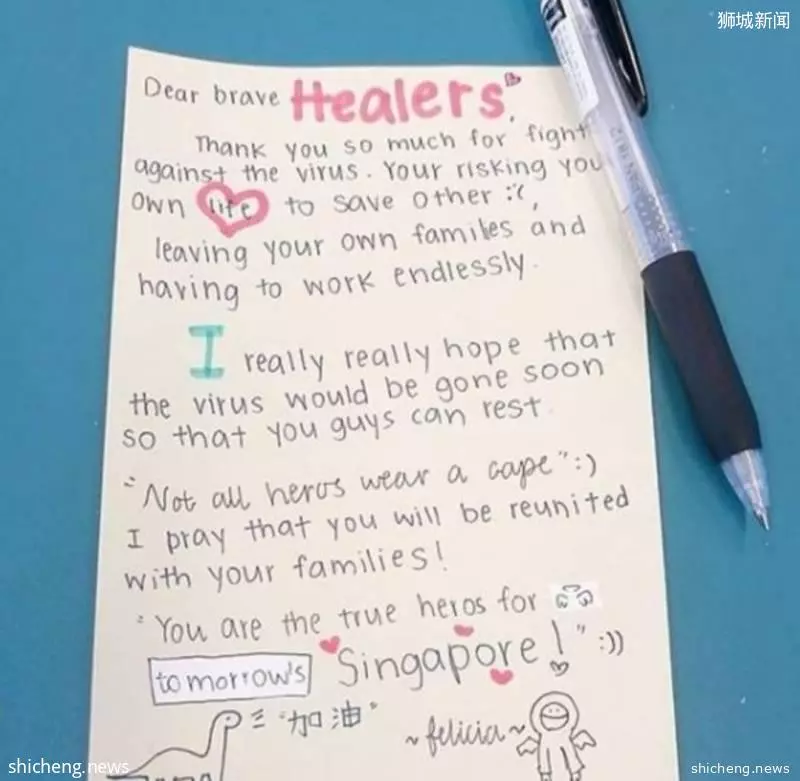 狮城新闻
Dear brave Healers,
Thank you so much for fight
against the virus. Your risking you
own life to save other :'(,
leaving your own familes and
having to work endlessly.
I really really hope that
the virus would be gone soon
so that you guys can rest.
"Not all heros wear a cape" :)
I pray that you will be reunited
with your families!
"You are the true heros for
tomorrow's Singapore!" :))
"加油"
~felicia~
shicheng.news
shicheng.news